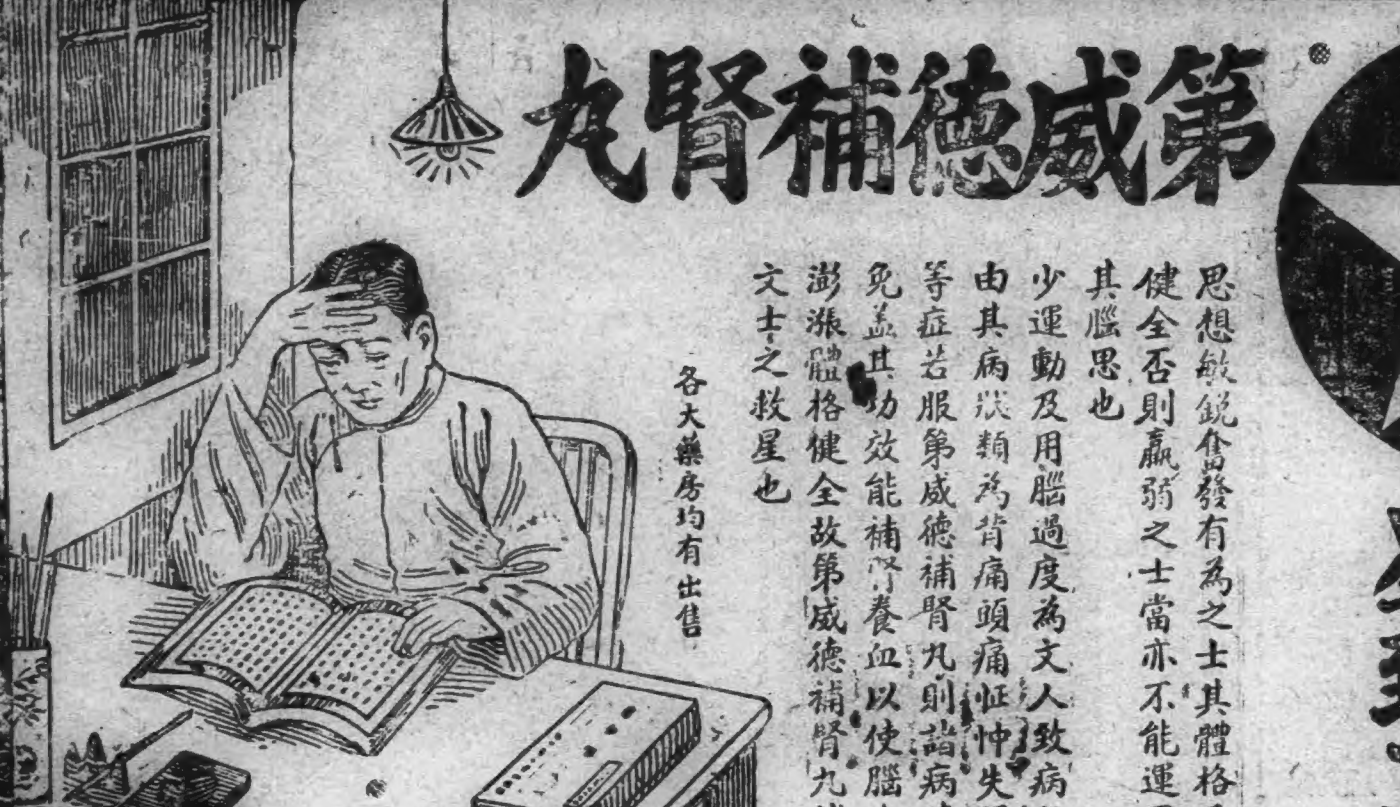 第威德補腎丸
思想敏銳奮發有為之士其體格
健全否則羸弱之士當亦不能運
其腦思也
少運動及用腦過度為文人致病
由其病狀類為背痛頭痛怔忡失
等症若服第威德補腎丸則諸病
免蓋其功效能補腎養血以使腦
澎漲體格健全故第威德補腎丸
文士之救星也
各大藥房均有出售